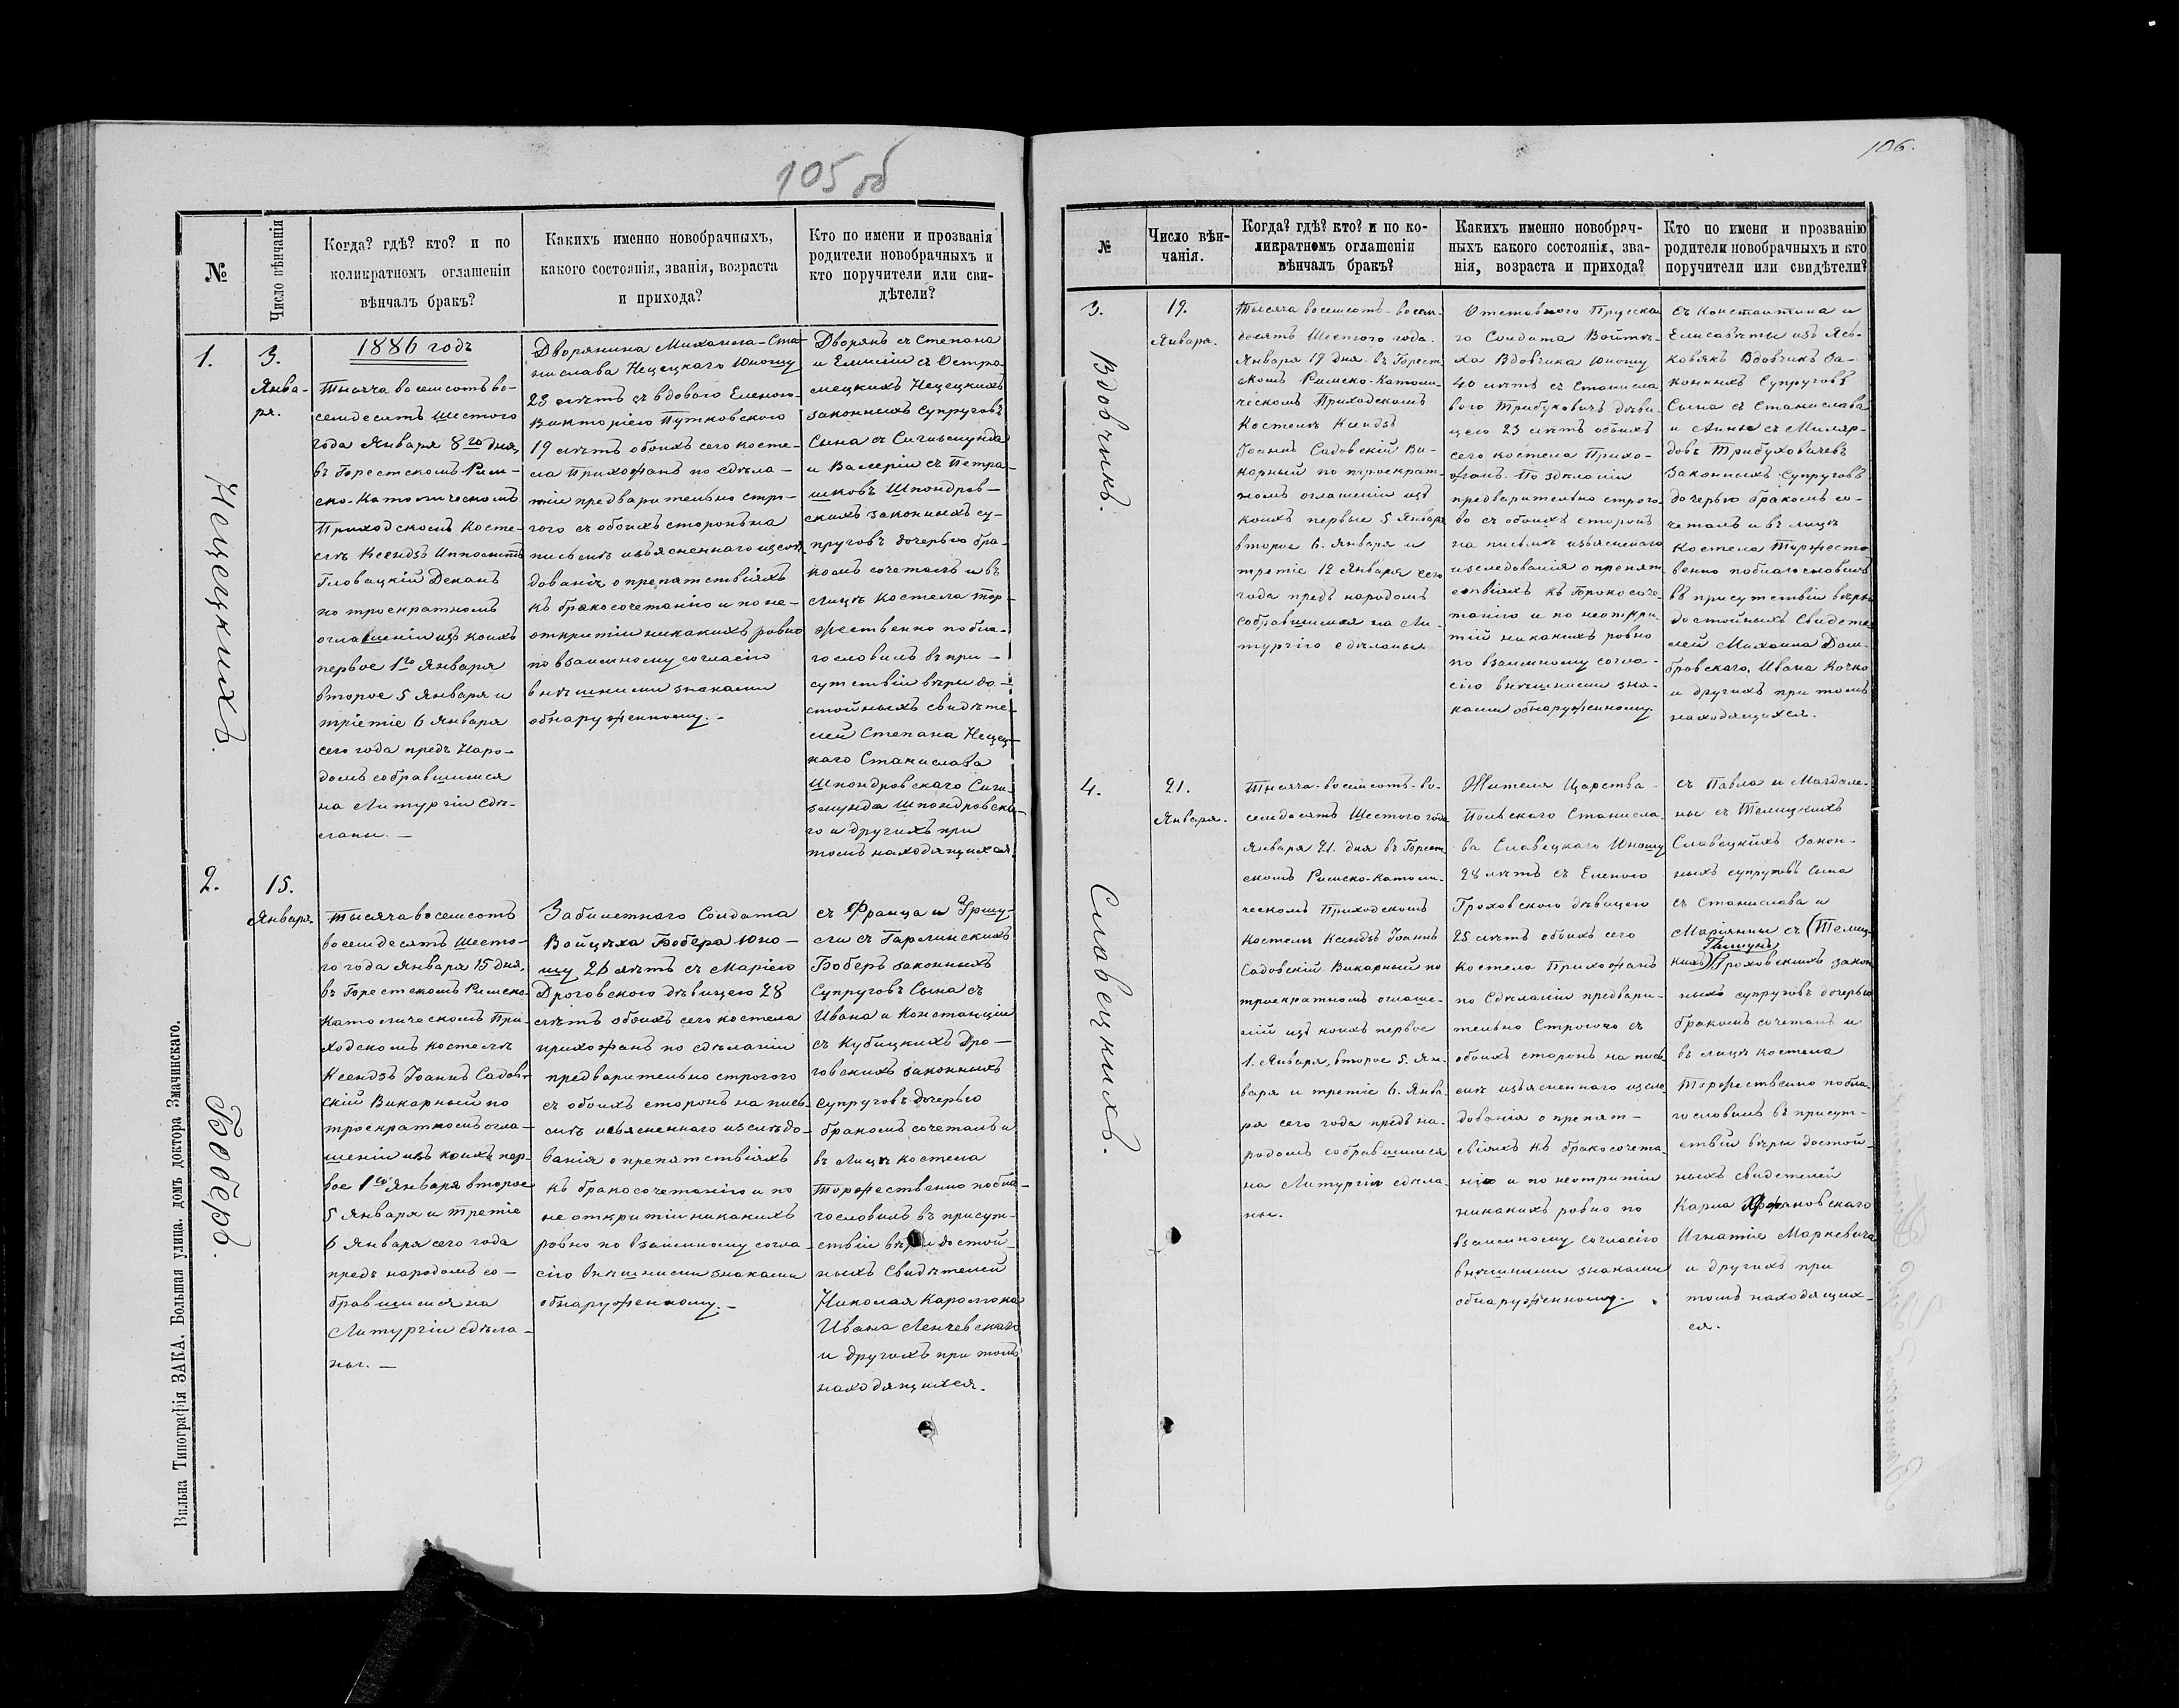 105 об
№
Число вѣнчанія
Когда? гдѣ? кто? и по
коликратномъ оглашеніи
вѣнчалъ бракъ?
Какихъ именно новобрачныхъ,
какого состоянія, званія, возраста
и прихода?
Кто по имени и прозванія
родители новобрачныхъ и
кто поручители или сви-
дѣтели?
1.
Нецецкихъ.
3.
Янва-
ря.
1886 годъ
Тысяча восемсотъ во-
семдесятъ шестого
года Января 8го дня,
въ Брестскомъ Рим-
ско-Католическомъ
Приходскомъ Косте-
лѣ Ксендзъ Ипполитъ
Гловацкій Деканъ
по троекратномъ
оглашеніи изъ коихъ
первое 1го Января
второе 5 Января и
тріетіе 6 Января
сего года предъ Наро-
домъ собравшимся
на Литургіи сдѣ-
ланы. —
Дворянина Михаила-Ста-
нислава Нецецкаго Юношу
23 лѣтъ съ вдовою Еленою-
Викторіею Путковскою
19 лѣтъ обоихъ сего косте-
ла Прихожанъ по сдѣла-
ніи предварительно стро-
гого съ обоихъ сторонъ на
письмѣ изъясненнаго изслѣ-
дованія о препятствіяхъ
къ бракосочетанію и по не-
открытіи никакихъ ровно
по взаимному согласію
внѣшними знаками
обнаруженному. -
Дворянъ съ Степана
и Емиліи съ Остро-
мецкихъ Нецецкихъ
законныхъ супруговъ
Сына съ Сигизмунда
и Валеріи съ Петра-
шковъ Шпондров-
скихъ законныхъ су-
пруговъ дочерью бра-
комъ сочеталъ и въ
Лицѣ костела тор-
жественно побла-
гословилъ въ при-
сутствіи вѣры до-
стойныхъ свидѣте-
лей Степана Нецец-
каго Станислава
Шпондровскаго Сиги-
змунда Шпондровска-
го и другихъ при
томъ находящихся.
2.
Боберъ.
15.
Января
Тысяча восемсотъ
восемдесятъ шесто-
го года Января 15 дня,
въ Брестскомъ Римско-
Католическомъ При-
ходскомъ костелѣ
Ксендзъ Іоаннъ Садов-
скій Викарный по
троекратномъ огла-
шеніи изъ коихъ пер-
вое 1го Января второе
5 Января и третіе
6 Января сего года
предъ народомъ со-
бравшимся на
Литургіи сдѣла-
ны. —
Забилетного Солдата
Войцѣха Бобера Юно-
шу 26 лѣтъ съ Маріею
Дроговского дѣвицею 28
лѣтъ обоихъ сего костела
прихожанъ по сдѣланіи
предварительно строгого
съ обоихъ сторонъ на пись-
мѣ изъясненнаго изслѣдо-
ванія о препятствіяхъ
къ бракосочетанію и по
не открытіи никакихъ
ровно по взаимному согла-
сію внѣшними знаками
обнаруженному. —
съ Франца и Уршу-
ли съ Гарлинскихъ
Боберъ законныхъ
Супруговъ Сына съ
Ивана и Констанціи
съ Кубицкихъ Дро-
говскихъ законныхъ
супруговъ дочерью
бракомъ сочеталъ и
въ Лицѣ костела
торжественно побла-
гословилъ въ присут-
ствіи вѣры достой-
ныхъ Свидѣтелей
Николая
Ивана Ленчевскаго
и другихъ при томъ
находящихся.
Вильна Типографія ЗАКА. Большая улица. домъ доктора Змачинскаго.
106.
№
Число вѣн-
чанія.
Когда? гдѣ? кто? и по ко-
ликратномъ оглашеніи
вѣнчалъ бракъ?
Какихъ именно новобрач-
ныхъ какого состоянія, зва-
нія, возраста и прихода?
Кто по имени и прозванію
родители новобрачныхъ и кто
поручители или свидѣтели?
3.
Вдовчикъ.
19.
Января.
Тысяча восемсотъ-восем-
десятъ Шестого года.
Января 19 дня. въ Брест-
скомъ Римско-Католи-
ческомъ Приходскомъ
Костелѣ Ксендзъ
Іоаннъ Садовскій Ви-
карный по троекрат-
номъ оглашеніи изъ
коихъ первые 5 Января
второе 6. Января и
третіе 12 Января сего
года предъ народомъ
собравшимся на Ли-
тургіи сдѣланы
Отставного Прускаг
го Солдата Войтѣ-
ха Вдовчика Юношу
40 лѣтъ съ Станисла-
вого Трибуховичъ дѣви-
цею 23 лѣтъ обоихъ
сего костела Прихо-
жанъ. По зделаніи
предварительно строго-
во съ обоихъ сторонъ
на письмѣ изъясненаго
изследованія о препят-
ствіяхъ къ бракосоче-
танію и по неоткры-
тій никакихъ ровно
по взаимному согла-
сію внѣшними зна-
ками обнаруженному.
съ Константина и
Елисавѣты изъ Яс-
ковякъ Вдовчикъ за-
конныхъ Супруговъ
Сына съ Станислава
и Анны съ Миляр-
довъ Трибуховичевъ
Законныхъ Супруговъ
дочерью бракомъ со-
четалъ и въ лицѣ
Костела Торжест-
венно поблагословилъ
въ присутствіи вѣры
достойныхъ Свидете-
лей Михаила Дом-
бровскаго, Ивана Кочко
и другихъ при томъ
находящихся.
4.
Славецкихъ.
21.
Января.
Тысяча-восемсотъ-во-
семдесятъ Шестого года
Января 21. дня въ Брест-
скомъ Римско-Католи-
ческомъ Приходскомъ
Костелѣ Ксендзъ Іоаннъ
Садовскій Викарный по
троекратномъ оглаше-
ній изъ коихъ первое
1. Января, второе 5. Ян-
варя и третіе 6. Янва-
ря сего года предъ на-
родомъ собравшимся
на Литургіи сдѣла-
ны.
Жителя Царства-
Польского Станисла-
ва Славецкаго Юношу
28 лѣтъ съ Еленою
Гроховского дѣвицею
25 лѣтъ обоихъ сего
Костела Прихожанъ
по Сдѣланіи предвари-
тельно Строгого съ
обоихъ сторонъ на пись-
мѣ изъясненнаго изсле-
дованія о препят-
свіяхъ къ бракосочета-
нію и по неотритіи
никакихъ ровно по
взаимному согласію
внѣшними знаками
обнаруженному.
съ Павла и Магдале-
ны съ Телицкихъ
Славецкихъ Закон-
ныхъ супруговъ Сына
съ Станислава и
Маріянны съ (Телиц-
кихъ) Гроховскихъ закон-
ныхъ супруговъ дочерью
бракомъ сочеталъ и
въ лицѣ костела
Торжественно побла-
гословилъ въ присут-
ствіи вѣры достой-
ныхъ свидетелей
Карла
Игнатія Маркевича
и другихъ при
томъ находящих-
ся.